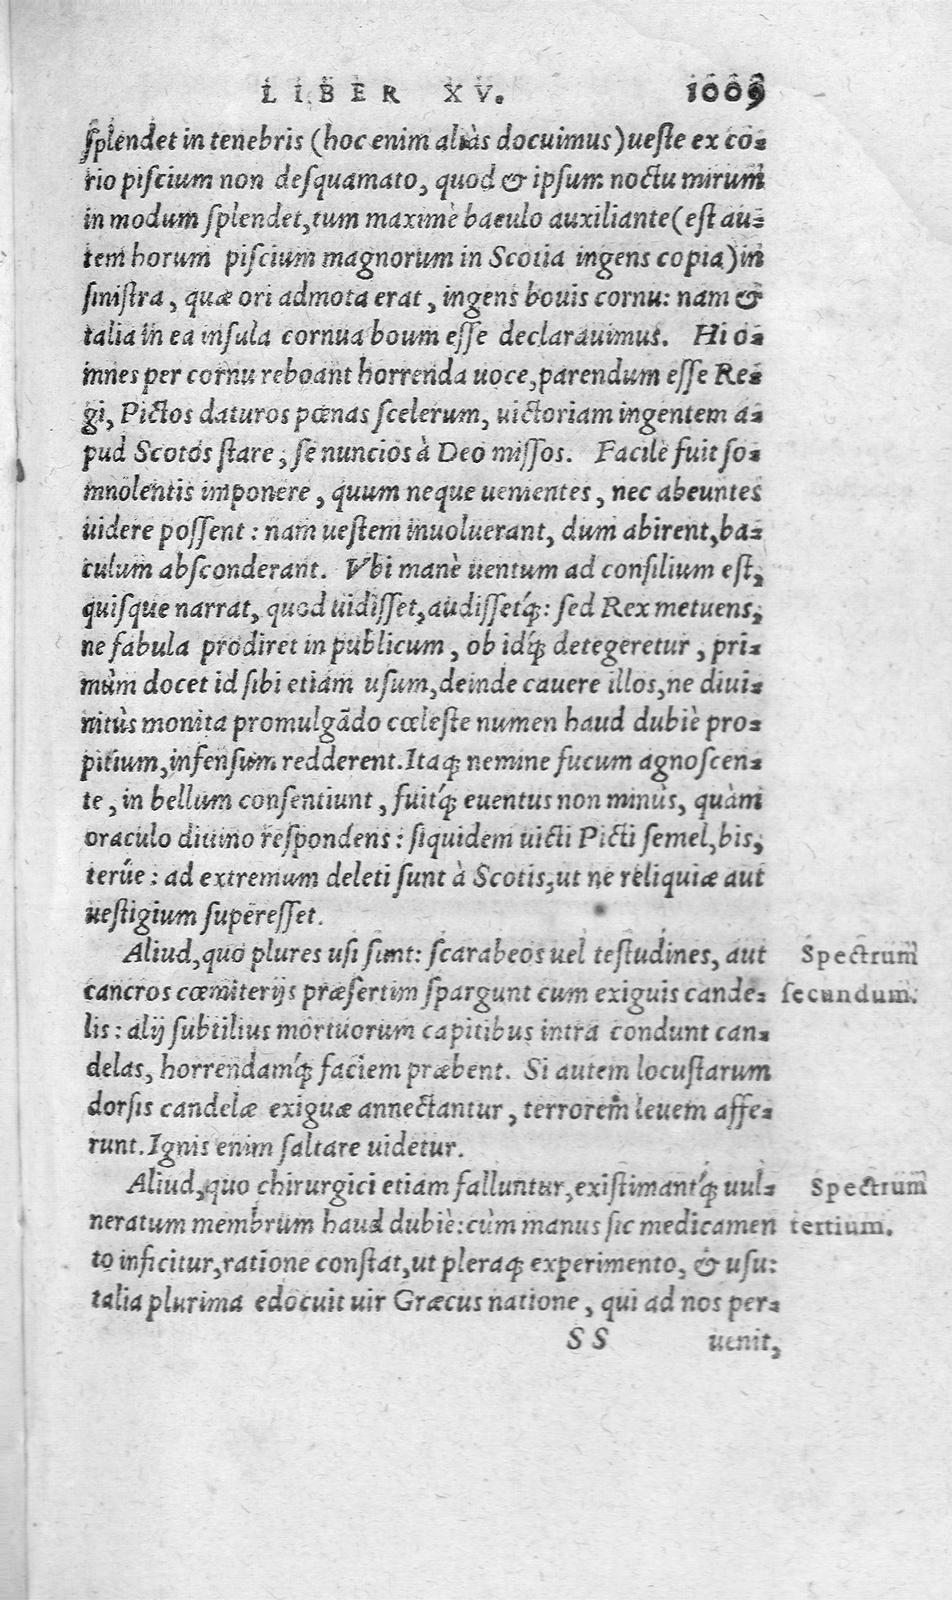 LIBER XV. 1009
ſplendet in tenebris (hoc enim aliàs docuimus) ueſte ex co-
rio piſcium non deſquamato, quod & ipſum noctu mirum
in modum ſplendet, tum maximè baculo auxiliante (eſt au-
tem horum piſcium magnorum in Scotia ingens copia) in
ſiniſtra, quæ ori admota erat, ingens bouis cornu: nam &
talia in ea inſula cornua boum eſſe declarauimus. Hi o-
mnes per cornu reboant horrenda uoce, parendum eſſe Re-
gi, Pictos daturos pœnas ſcelerum, uictoriam ingentem a-
pud Scotos ſtare, ſe nuncios à Deo miſſos. Facilè fuit ſo-
mnolentis imponere, quum neque uenientes, nec abeuntes
uidere poſſent: nam ueſtem inuoluerant, dum abirent, ba-
culum abſconderant. Vbi manè uentum ad conſilium eſt,
quiſque narrat, quod uidiſſet, audiſſetq́;: ſed Rex metuens,
ne fabula prodiret in publicum, ob idq́; detegeretur, pri-
mùm docet id ſibi etiam uſum, deinde cauere illos, ne diui-
nitùs monita promulgādo cœleſte numen haud dubiè pro-
pitium, infenſum redderent. Itaq; nemine fucum agnoſcen-
te, in bellum conſentiunt, fuitq́; euentus non minùs, quàm
oraculo diuino reſpondens: ſiquidem uicti Picti ſemel, bis,
terúe: ad extremum deleti ſunt à Scotis, ut ne reliquiæ aut
ueſtigium ſupereſſet.
Aliud, quo plures uſi ſunt: ſcarabeos uel teſtudines, aut Spectrum
cancros cœmiterijs præſertim ſpargunt cum exiguis cande- ſecundum.
lis: alij ſubtilius mortuorum capitibus intra condunt can-
delas, horrendamq́; faciem præbent. Si autem locuſtarum
dorſis candelæ exiguæ annectantur, terrorem leuem affe-
runt. Ignis enim ſaltare uidetur.
Aliud, quo chirurgici etiam falluntur, exiſtimantq́; uul- Spectrum
neratum membrum haud dubiè: cùm manus ſic medicamen tertium.
to inficitur, ratione conſtat, ut pleraq; experimento, & uſu:
talia plurima edocuit uir Græcus natione, qui ad nos per-
SS uenit,